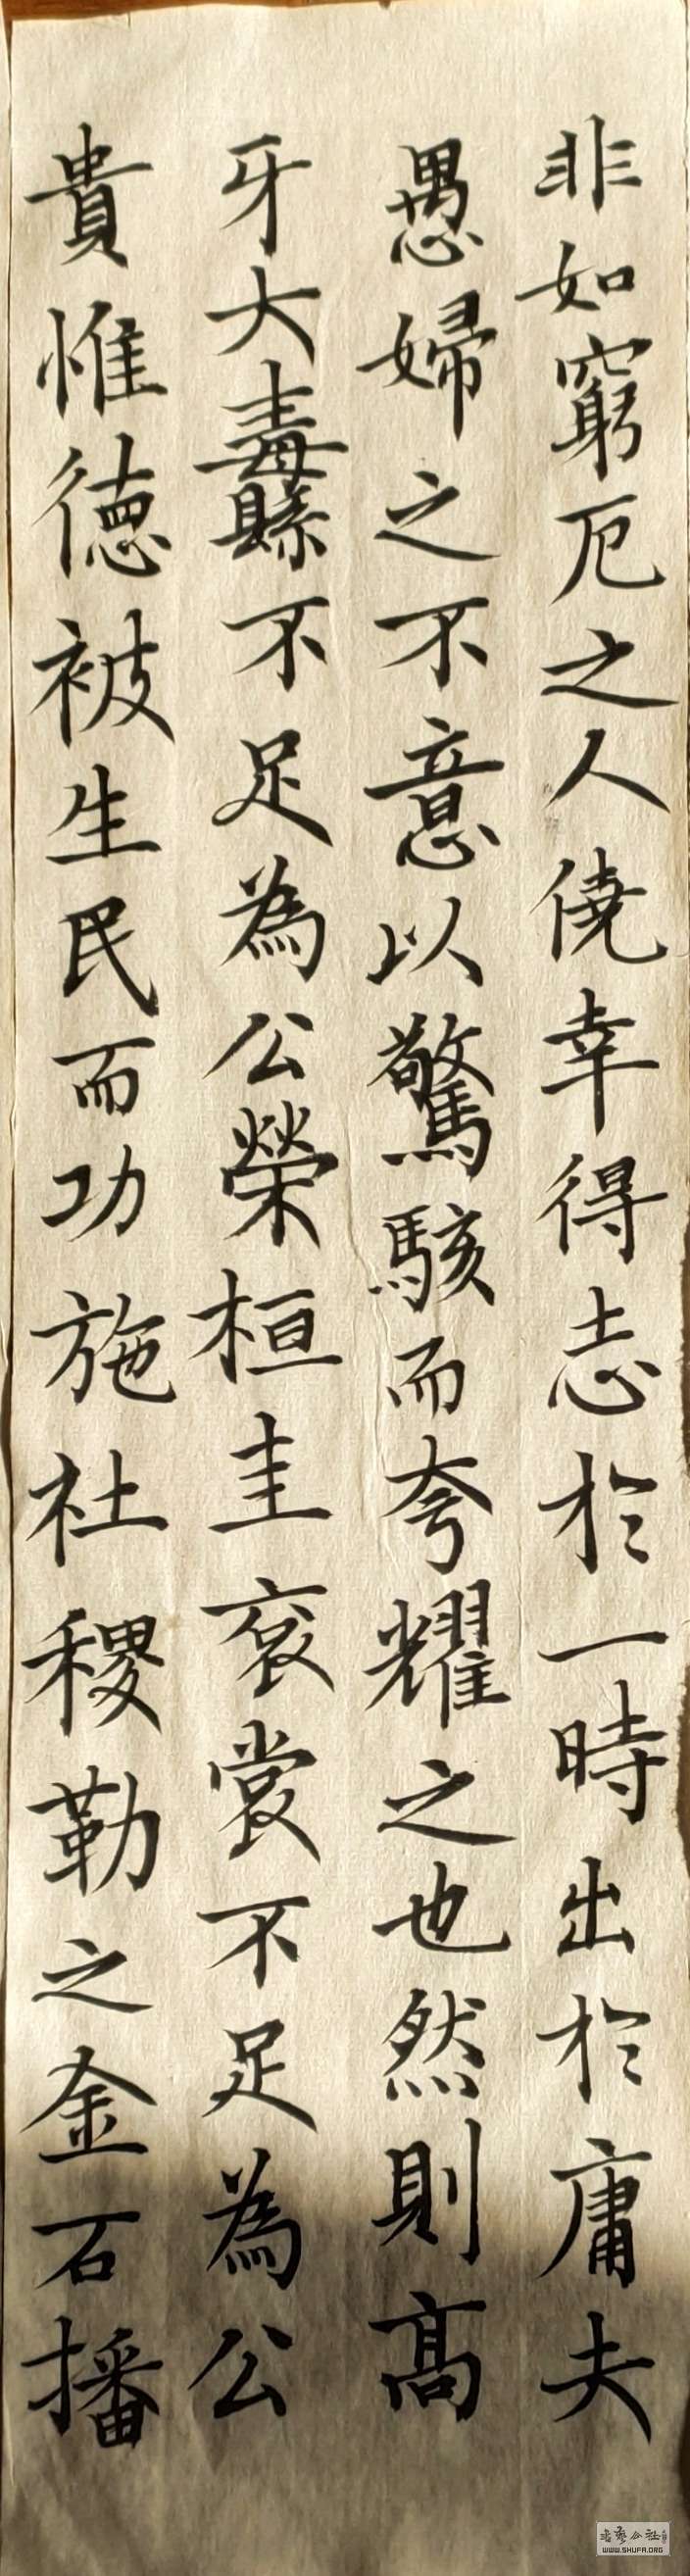 非如窮厄之人僥幸得志於一時出於庸夫
愚婦之不意以驚駭而夸耀之也然則高
牙大纛不足為公榮桓圭袞裳不足為公
貴惟德被生民而功施社稷勒之金石播
书艺公社
WWW.SHUFA.ORG